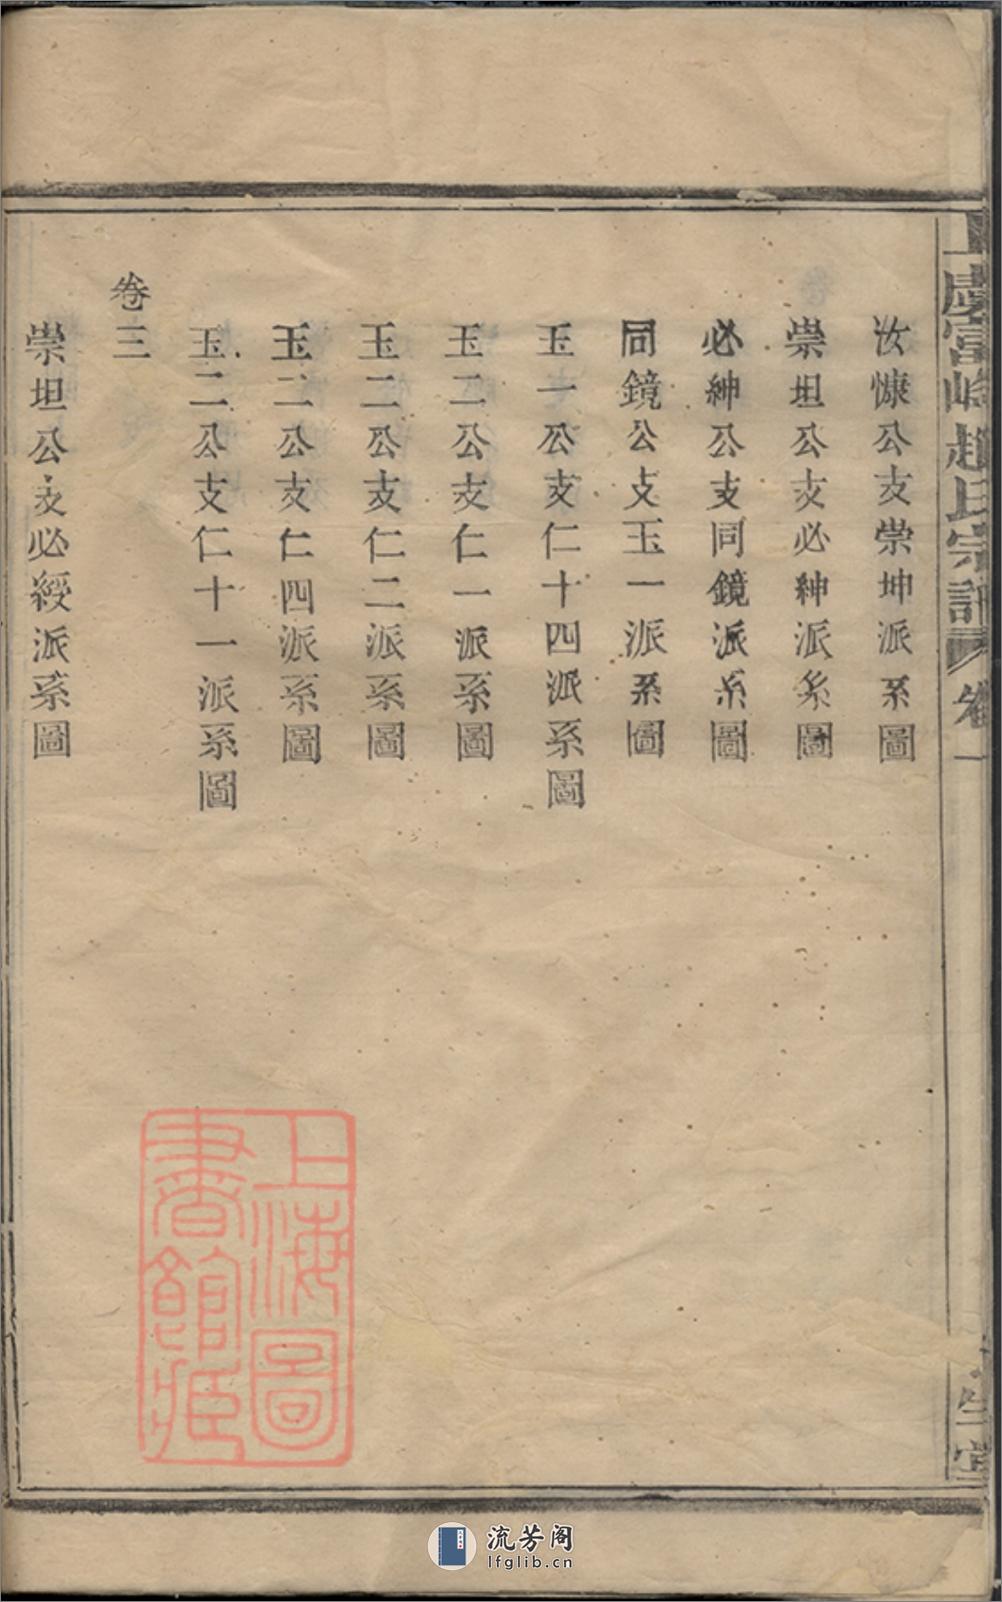 汝慷公支崇坤派系圖
崇坦公支必紳派系圖
必紳公支同鏡派系圖
同鏡公支玉一派系圖
玉一公支仁十四派系圖
玉二公支仁一派系圖
玉二公支仁二派系圖
玉二公支仁四派系圖
玉二公支仁十一派系圖
卷三
崇坦公支必綬派系圖
上慶宮崎趙氏宗譜 卷一
生堂
上海圖書館藏
流芳阁
lfglib.cn